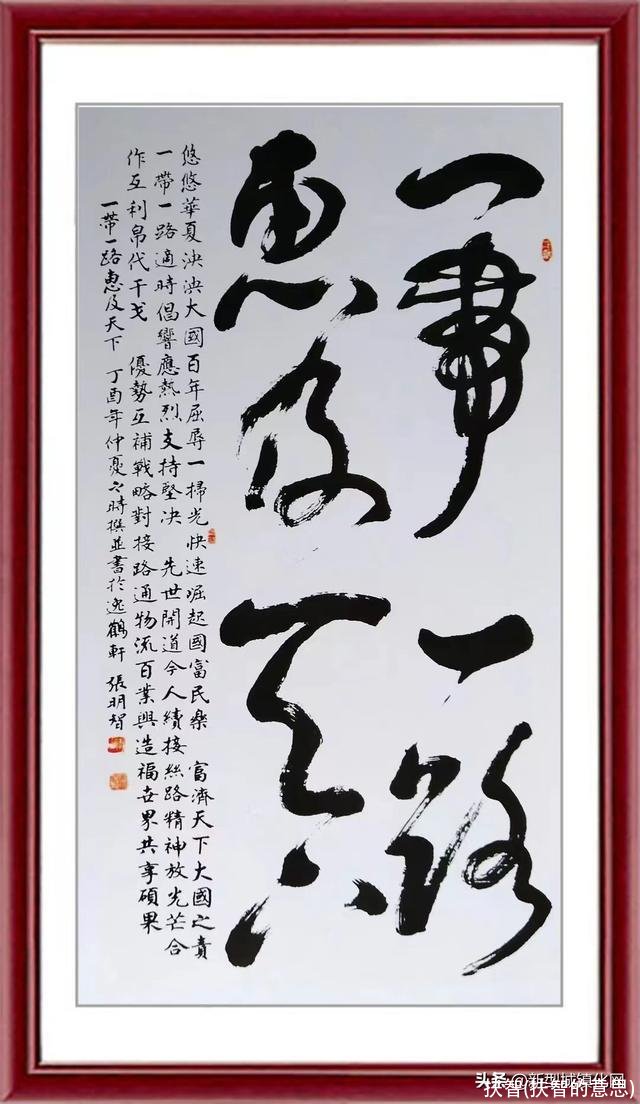 一帶一路
惠及天下
悠悠華夏泱泱大國百年屈辱一掃光快速崛起國富民樂 富濟天下大國之責
一帶一路適時倡響應熱烈支持堅决 先世開道今人續接絲路精神放光芒合
作互利帛代干戈 優勢互補戰略對接路通物流百業興造福世界共享碩果
一帶一路惠及天下 丁酉年仲夏之時撰並書於逸鶴軒 張明智
头条@新型城镇化网
扶智(扶智的意思)